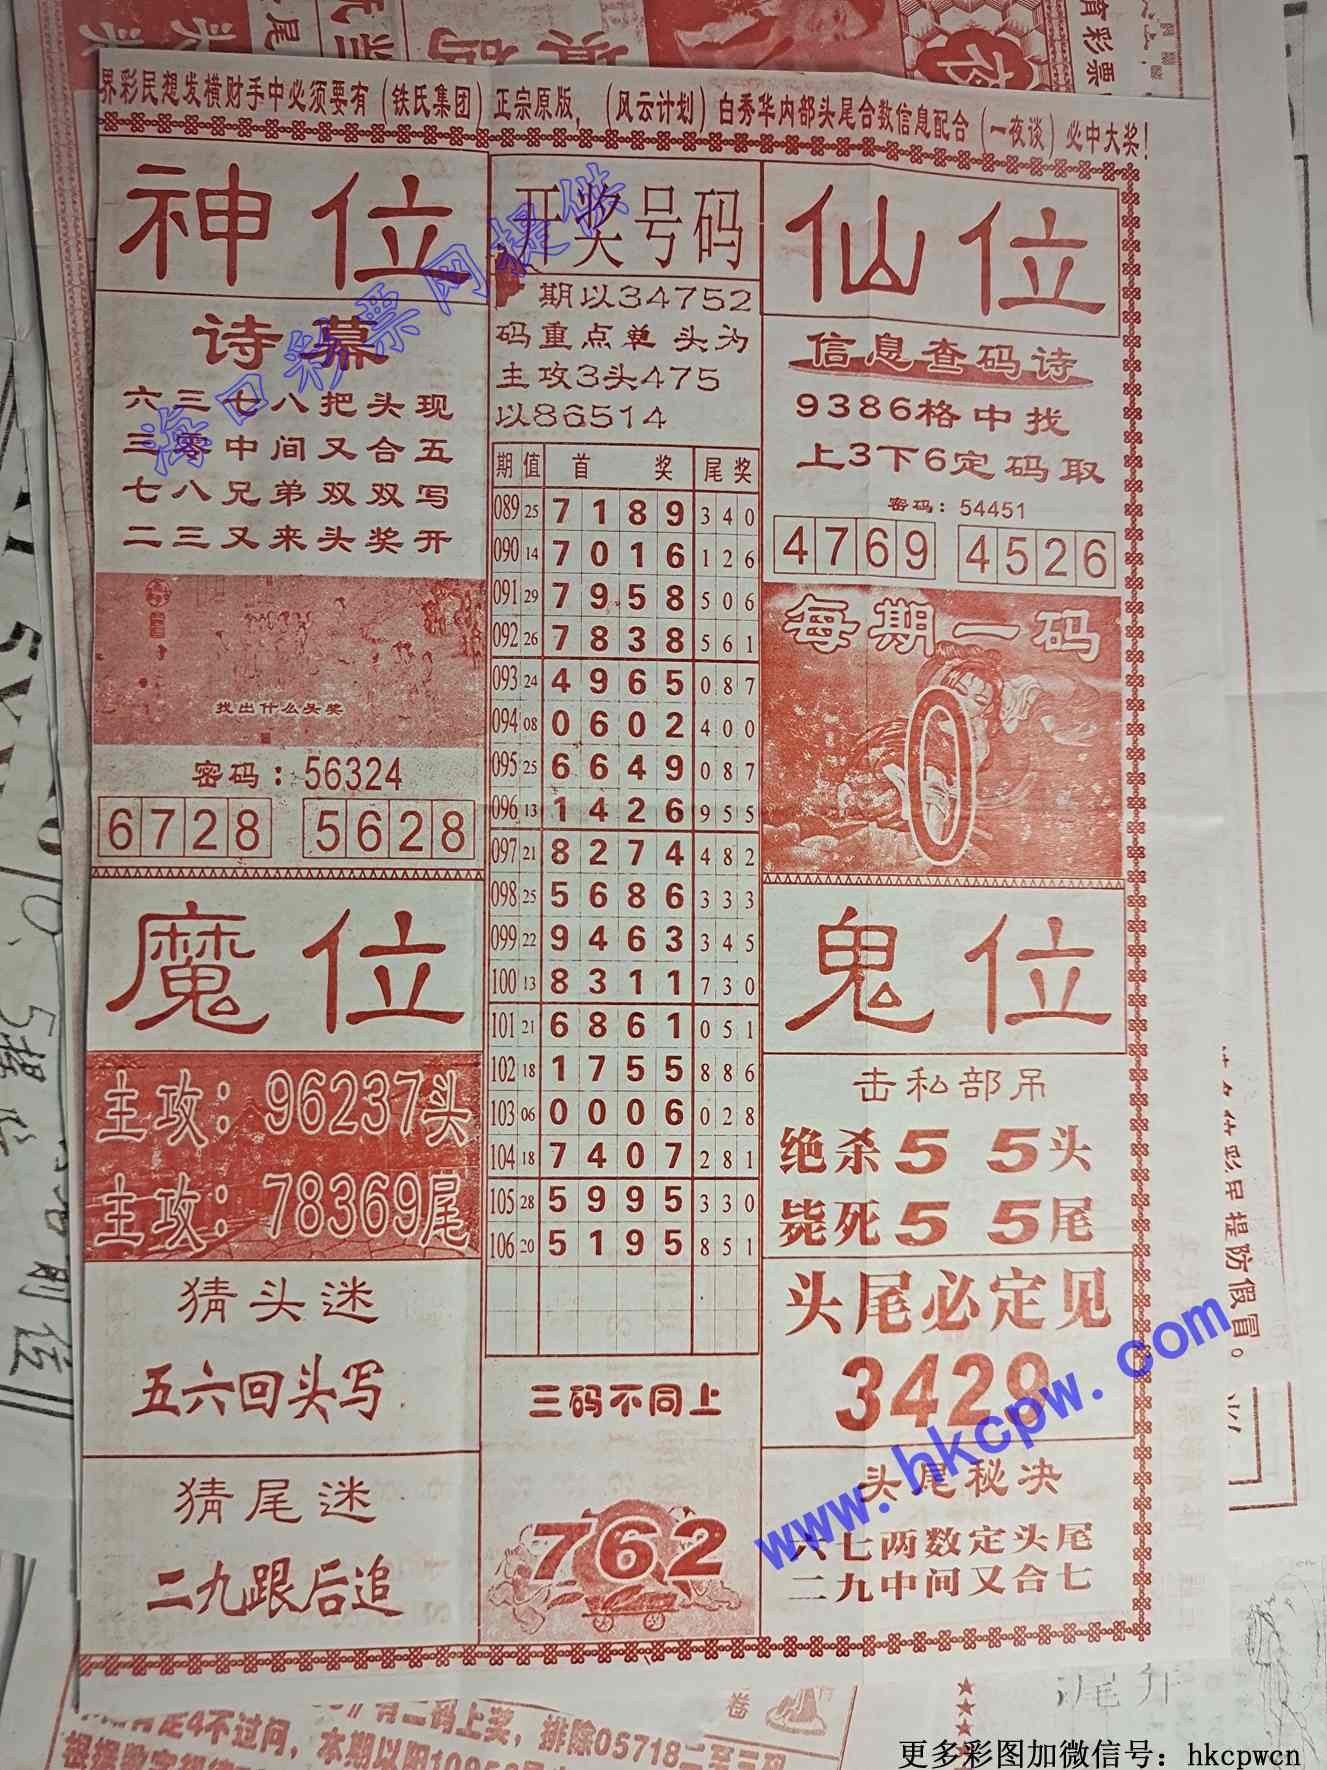 界彩民想发横财手中必须要有（铁氏集团）正宗原版，（风云计划）白秀华内部头尾合数信息配合（一夜谈）必中大奖！
神位
诗幕
六三七八把头现
三零中间又合五
七八兄弟双双写
二三又来头奖开
找出什么头奖
密码：56324
6728 5628
魔位
主攻：96237头
主攻：78369尾
猜头迷
五六回头写
猜尾迷
二九跟后追
开奖号码
期以34752
码重点单 头为
主攻3头475
以86514
期 值 首 奖 尾 奖
089 25 7 1 8 9 3 4 0
090 14 7 0 1 6 1 2 6
091 29 7 9 5 8 5 0 6
092 26 7 8 3 8 5 6 1
093 24 4 9 6 5 0 8 7
094 08 0 6 0 2 4 0 0
095 25 6 6 4 9 0 8 7
096 13 1 4 2 6 9 5 5
097 21 8 2 7 4 4 8 2
098 25 5 6 8 6 3 3 3
099 22 9 4 6 3 3 4 5
100 13 8 3 1 1 7 3 0
101 21 6 8 6 1 0 5 1
102 18 1 7 5 5 8 8 6
103 06 0 0 0 6 0 2 8
104 18 7 4 0 7 2 8 1
105 28 5 9 9 5 3 3 0
106 20 5 1 9 5 8 5 1
三码不同上
762
仙位
信息查码诗
9386格中找
上3下6定码取
密码：54451
4769 4526
每期一码
0
鬼位
击私部吊
绝杀5 5头
毙死5 5尾
头尾必定见
3429
头尾秘决
六七两数定头尾
二九中间又合七
海口彩票网提供
www.hkcpw.com
彩民提防假冒。
足4不过问，本期以阳
有二码上奖，排除05718二至三码
更多彩图加微信号：hkcpwcn